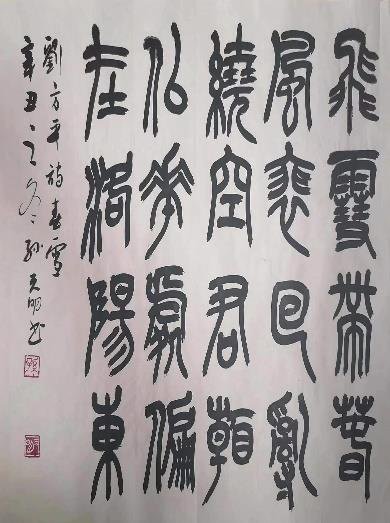 飛雪帶春
風裵回亂
繞空君看
似華處偏
在洛陽東
劉方平詩春雪
辛丑之冬孫天明书